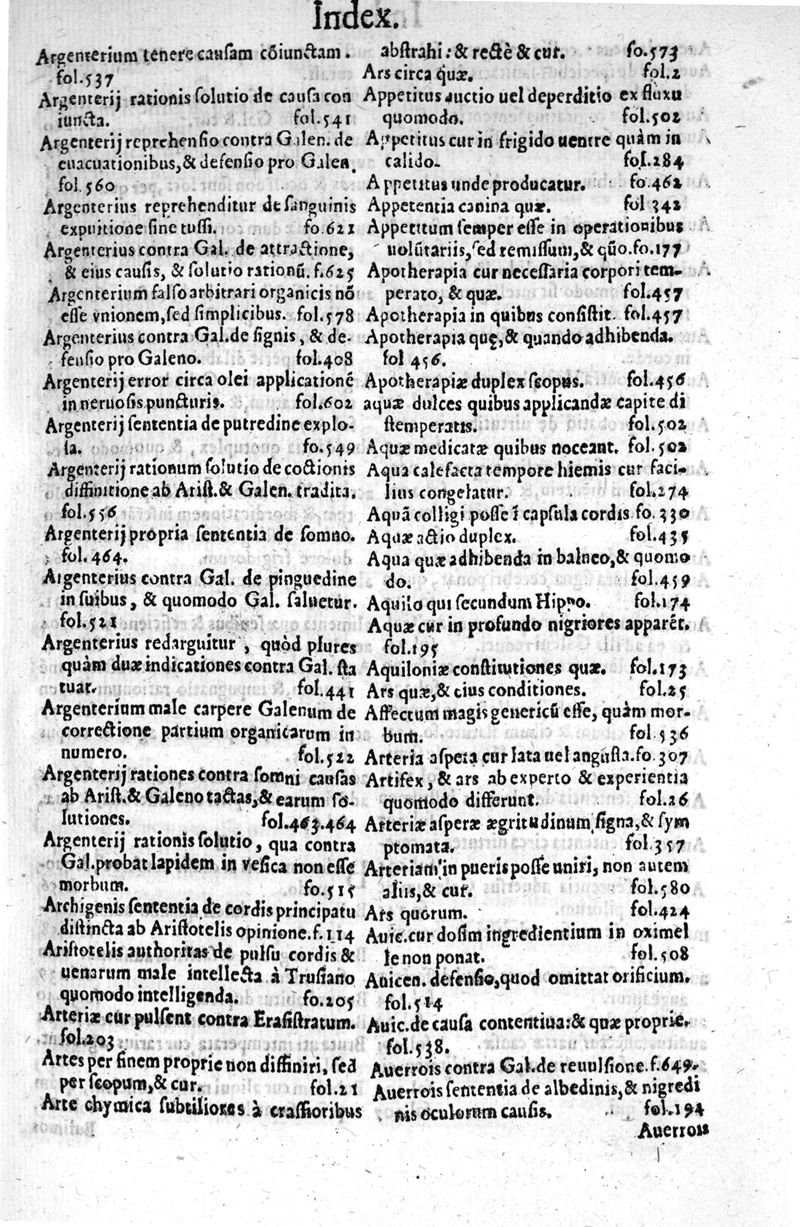 Index.
Argenterium tenere causam cõiunctam.
fol.537
Argenterij rationis solutio de causa con
iuncta. fol.541
Argenterij reprehensio contra Galen. de
euacuationibus, & defensio pro Galen.
fol.560
Argenterius reprehenditur de sanguinis
expuitione sine tussi. fo.621
Argenterius contra Gal. de attractione,
& eius causis, & solutio rationũ. f.625
Argenterium falso arbitrari organicis nõ
esse vnionem, sed simplicibus. fol.578
Argenterius contra Gal. de signis, & de-
fensio pro Galeno. fol.408
Argenterij error circa olei applicationẽ
in neruosis puncturis. fol.602
Argenterij sententia de putredine explo-
sa. fo.549
Argenterij rationum solutio de coctionis
diffinitione ab Arist. & Galen. tradita.
fol.556
Argenterij propria sententia de somno.
fol.464.
Argenterius contra Gal. de pinguedine
in suibus, & quomodo Gal. saluetur.
fol.521
Argenterius redarguitur, quòd plures
quàm duæ indicationes contra Gal. sta
tuat. fol.441
Argenterium male carpere Galenum de
correctione partium organicarum in
numero. fol.522
Argenterij rationes contra somni causas
ab Arist. & Galeno tactas, & earum so-
lutiones. fol.463.464
Argenterij rationis solutio, qua contra
Gal. probat lapidem in vesica non esse
morbum. fo.515
Archigenis sententia de cordis principatu
distincta ab Aristotelis opinione. f.114
Aristotelis authoritas de pulsu cordis &
uenarum male intellecta à Trusiano
quomodo intelligenda. fo.205
Arteriæ cur pulsent contra Erasistratum.
fol.203
Artes per finem proprie non diffiniri, sed
per scopum, & cur. fol.21
Arte chymica subtiliores à crassioribus
abstrahi: & rectè & cur. fo.573
Ars circa quæ. fol.2
Appetitus auctio uel deperditio ex fluxu
quomodo. fol.502
Appetitus cur in frigido uentre quàm in
calido. fol.284
Appetitus unde producatur. fo.462
Appetentia canina quæ. fol 342
Appetitum semper esse in operationibus
uolũtariis, sed remissum, & q̃uo. fo.177
Apotherapia cur necessaria corpori tem-
perato, & quæ. fol.457
Apotherapia in quibus consistit. fol.457
Apotherapia quę, & quando adhibenda.
fol 456.
Apotherapiæ duplex scopus. fol.456
aquæ dulces quibus applicandæ capite di
stemperatis. fol.502
Aquæ medicatæ quibus noceant. fol.502
Aqua calefacta tempore hiemis cur faci-
lius congelatur. fol.274
Aquã colligi posse ĩ capsula cordis fo.330
Aquæ actio duplex. fol.435
Aqua quæ adhibenda in balneo, & quomo
do. fol.459
Aquilo qui secundum Hippo. fol.174
Aquæ cur in profundo nigriores apparẽt.
fol.195
Aquiloniæ constitutiones quæ. fol.173
Ars quæ, & eius conditiones. fol.25
Affectum magis genericũ esse, quàm mor-
bum. fol 536
Arteria aspera cur lata uel angusta. fo.307
Artifex, & ars ab experto & experientia
quomodo differunt. fol.26
Arteriæ asperæ ægritudinum signa, & sym
ptomata. fol.357
Arteriam in pueris posse uniri, non autem
aliis, & cur. fol.580
Ars quorum. fol.424
Auic. cur dosim ingredientium in oximel
le non ponat. fol.508
Auicen. defensio, quod omittat orificium.
fol.514
Auic. de causa contentiua: & quæ proprie.
fol.538.
Auerrois contra Gal. de reuulsione. f.649.
Auerrois sententia de albedinis, & nigredi
nis oculorum causis. fol.194
Auerrois